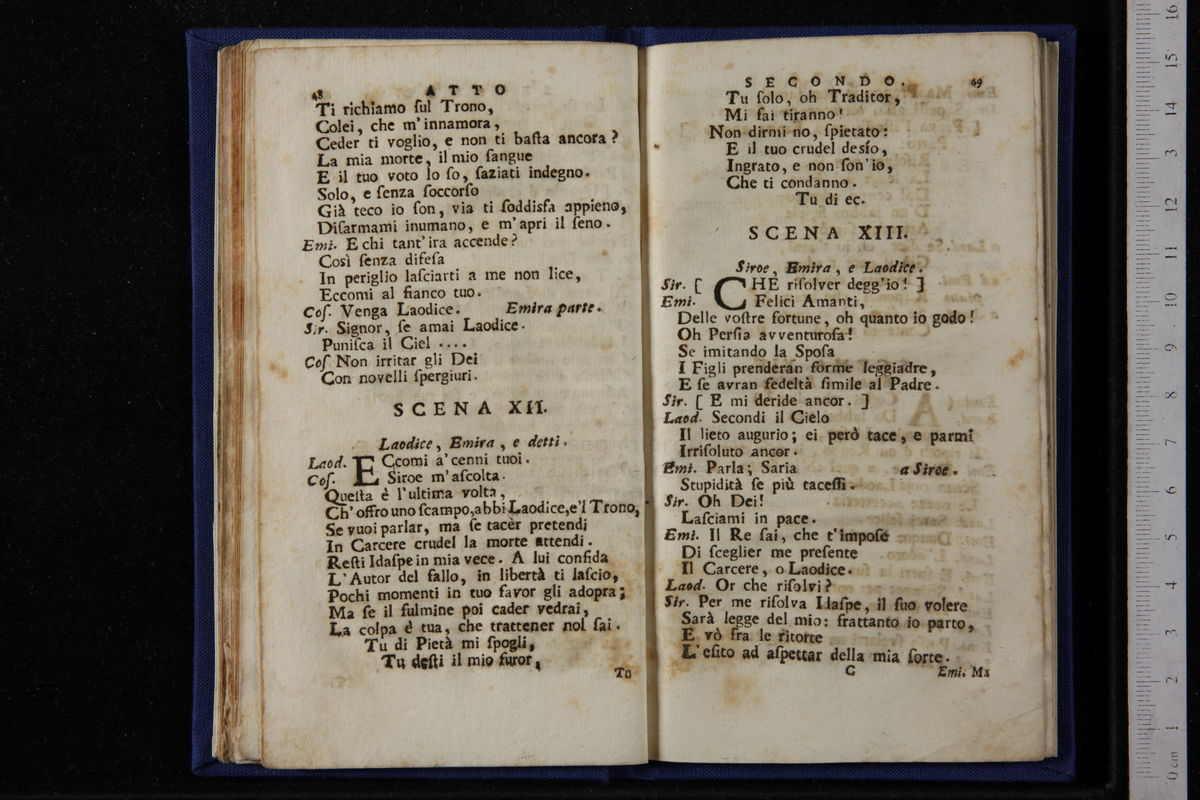 48 ATTO
Ti richiamo ſul Trono,
Colei, che m'innamora,
Ceder ti voglio, e non ti baſta ancora?
La mia morte, il mio ſangue
E il tuo voto lo ſo, ſaziati indegno.
Solo, e ſenza ſoccorſo
Già teco io ſon, via ti ſoddisfa appieno,
Diſarmami inumano, e m'apri il ſeno.
Emi. E chi tant'ira accende?
Così ſenza difeſa
In periglio laſciarti a me non lice,
Eccomi al fianco tuo.
Coſ. Venga Laodice. Emira parte.
Sir. Signor, ſe amai Laodice.
Puniſca il Ciel ....
Coſ Non irritar gli Dei
Con novelli ſpergiuri.
SCENA XII.
Laodice, Emira, e detti.
Laod. ECcomi a'cenni tuoi.
Coſ. Siroe m'aſcolta.
Queſta è l'ultima volta,
Ch'offro uno ſcampo,abbi Laodice,e'l Trono,
Se vuoi parlar, ma ſe tacèr pretendi
In Carcere crudel la morte attendi.
Reſti Idaſpe in mia vece. A lui confida
L'Autor del fallo, in libertà ti laſcio,
Pochi momenti in tuo favor gli adopra;
Ma ſe il fulmine poi cader vedrai,
La colpa è tua, che trattener nol ſai.
Tu di Pietà mi ſpogli,
Tu deſti il mio furor,
Tu
SECONDO. 49
Tu ſolo, oh Traditor,
Mi fai tiranno!
Non dirmi no, ſpietato:
E il tuo crudel desſo,
Ingrato, e non ſon'io,
Che ti condanno.
Tu di ec.
SCENA XIII.
Siroe, Emira, e Laodice.
Sir. [ CHE riſolver degg'io! ]
Emi. Felici Amanti,
Delle voſtre fortune, oh quanto io godo!
Oh Perſia avventuroſa!
Se imitando la Spoſa
I Figli prenderan forme leggiadre,
E ſe avran fedeltà ſimile al Padre.
Sir. [ E mi deride ancor. ]
Laod. Secondi il Cielo
Il lieto augurio; ei però tace, e parmi
Irriſoluto ancor.
Emi. Parla; Saria a Siroe.
Stupidità ſe più taceſſi.
Sir. Oh Dei!
Laſciami in pace.
Emi. Il Re ſai, che t'impoſe
Di ſceglier me preſente
Il Carcere, o Laodice.
Laod. Or che riſolvi?
Sir. Per me riſolva Idaſpe, il ſuo volere
Sarà legge del mio: frattanto io parto,
E vò fra le ritorte
L'eſito ad aſpettar della mia ſorte.
C Emi. Ma